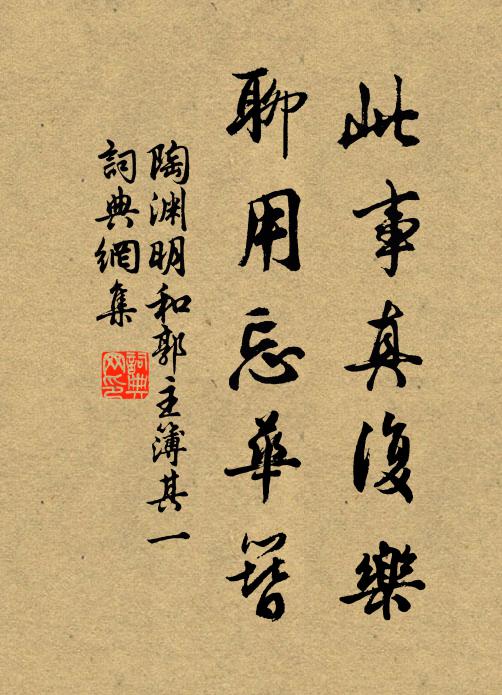 此事真復樂
聊用忘華簪
陶渊明和郭主簿其一
詞典網集
詞典网印